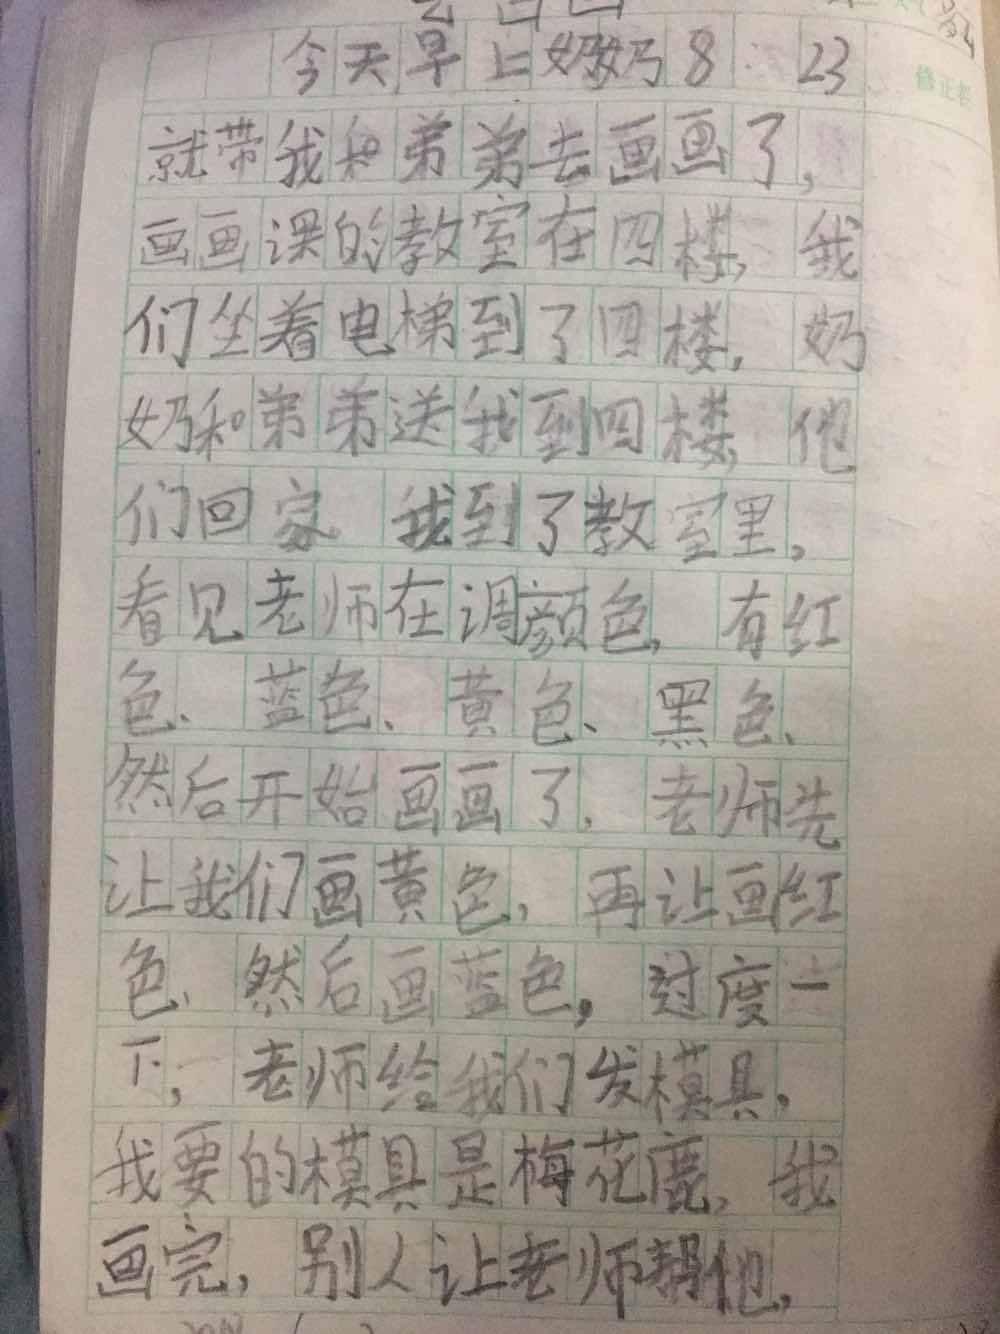 今天早上奶奶8:23
就带我和弟弟去画画了,
画画课的教室在四楼,我
们坐着电梯到了四楼,奶
奶和弟弟送我到四楼,他
们回家 我到了教室里,
看见老师在调颜色,有红
色、蓝色、黄色、黑色、
然后开始画画了,老师先
让我们画黄色,再让画红
色、然后画蓝色,过度一
下,老师给我们发模具,
我要的模具是梅花鹿,我
画完,别人让老师帮他,